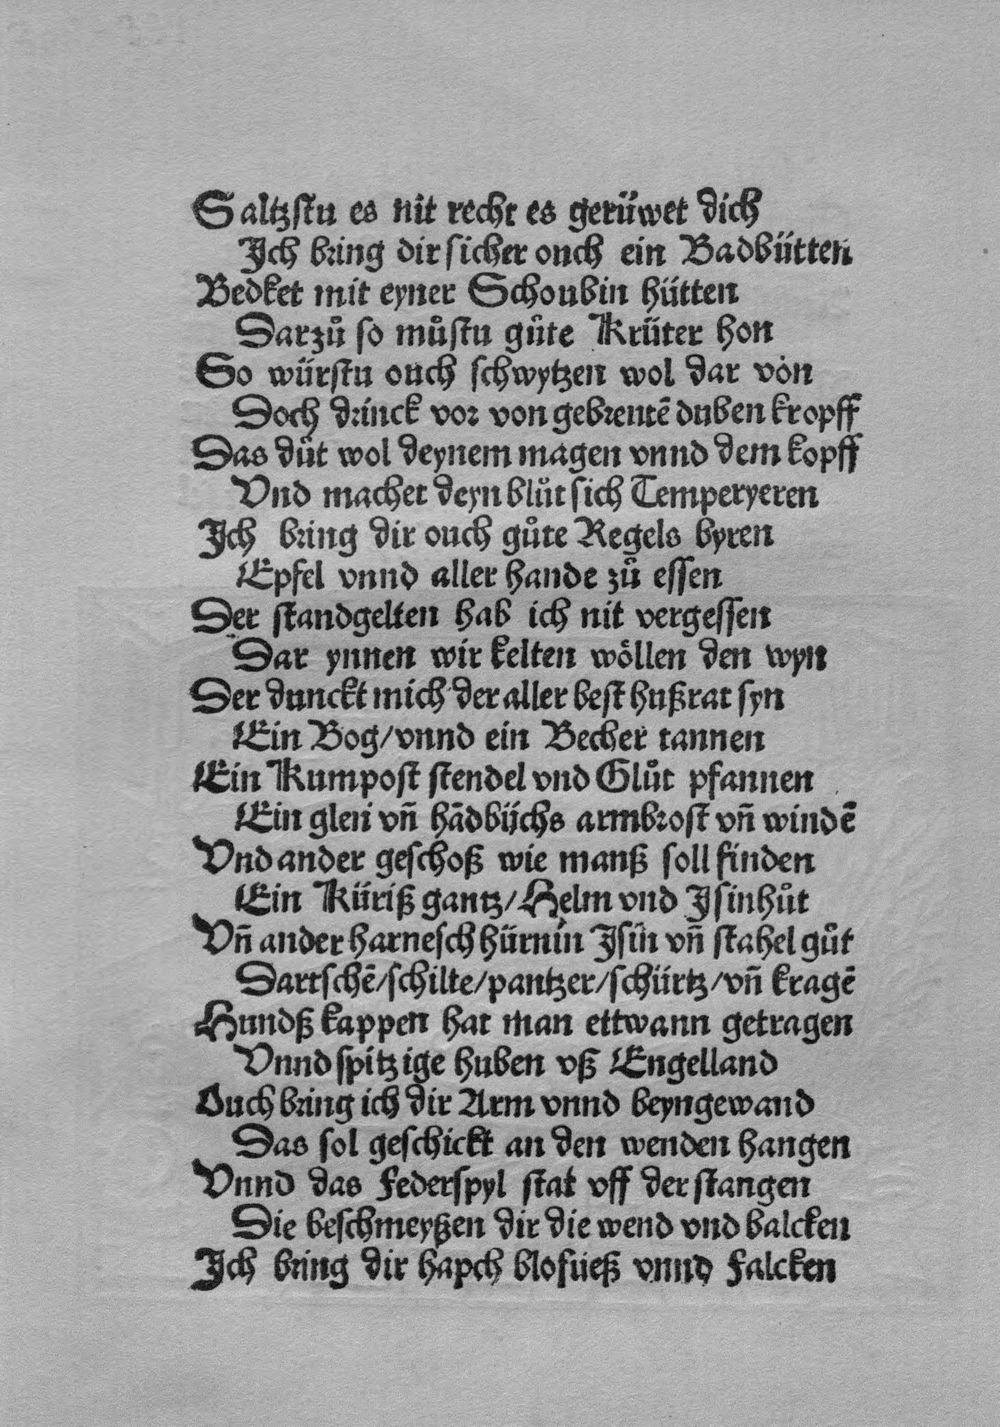 Saltzstu es nit recht es gerüwet dich
Jch bring dir sicher ouch ein Badbütten
Bedket mit eyner Schoubin hütten
Darzů so můstu gůte Krüter hon
So würstu ouch schwytzen wol dar von
Doch drinck vor von gebrentē duben kropff
Das důt wol deynem magen vnnd dem kopff
Vnd machet deyn blůt sich Temperyeren
Jch bring dir ouch gůte Regels byren
Epfel vnnd aller hande zů essen
Der standgelten hab ich nit vergessen
Dar ynnen wir kelten wöllen den wyn
Der dunckt mich der aller best hußrat syn
Ein Bog/vnnd ein Becher tannen
Ein Kumpost stendel vnd Glůt pfannen
Ein glen vñ hādbüchs armbrost vñ windē
Vnd ander geschoß wie manß soll finden
Ein Küriß gantz/Helm vnd Jsinhůt
Vñ ander harnesch hürnin Jsin vñ stahel gůt
Dartschē/schilte/pantzer/schürtz/vñ kragē
Hundß kappen hat man ettwann getragen
Vnnd spitzige huben vß Engelland
Ouch bring ich dir Arm vnnd beyngewand
Das sol geschickt an den wenden hangen
Vnnd das Federspyl stat vff der stangen
Die beschmeyßen dir die wend vnd balcken
Jch bring dir hapch blofüeß vnnd Falcken